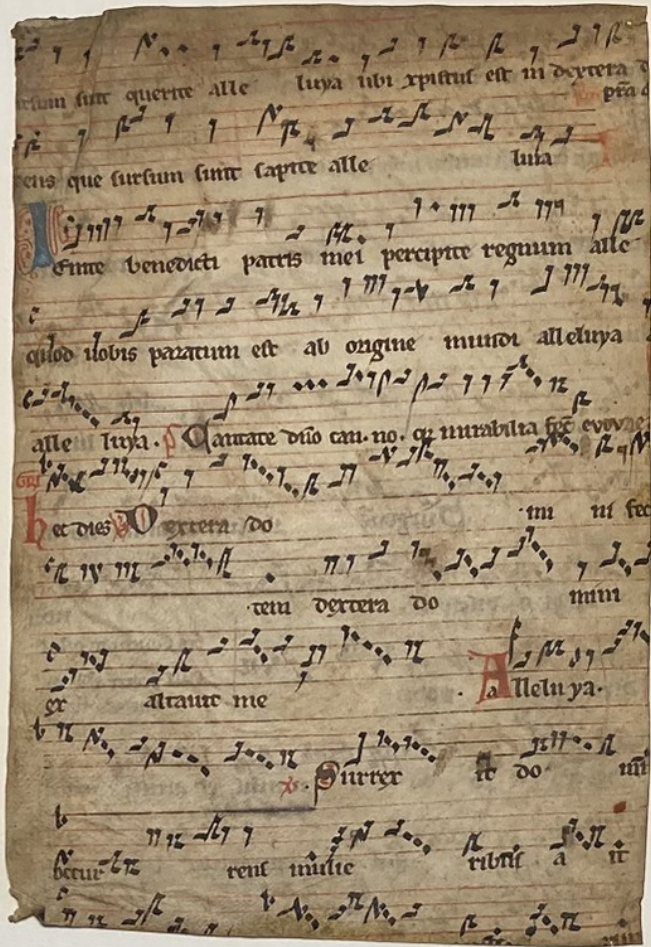 sursum sunt querite alle luya ubi xpistus est in dextera d
pra d
ens que sursum sunt sapite alle luia
Venite benedicti patris mei percipite regnum alle
quod uobis paratum est ab origine mundi alleluya
alle luya. Cantate dno can. no. qr mirabilia fec evovae
Gr
hec dies V Dextera do mi ni fec
tem dextera do mini
ex altauit me Alleluya.
Surrex it do
occur rens mulie ribus a it